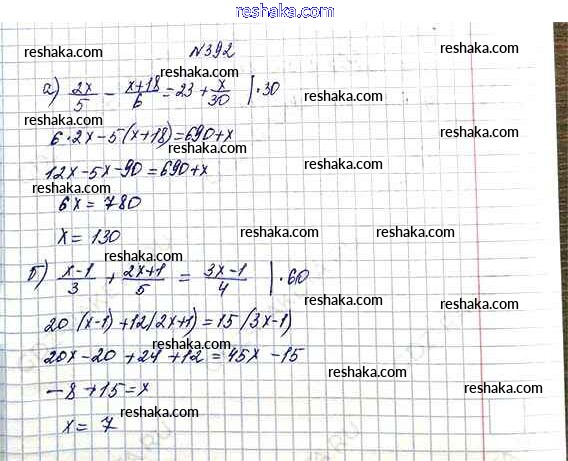 reshaka.com
№392
reshaka.com reshaka.com
reshaka.com
а) 2x/5 - (x+18)/6 = 23 + x/30 |·30
reshaka.com
6·2x-5(x+18)=690+x
reshaka.com
reshaka.com
12x-5x-90=690+x
reshaka.com
reshaka.com
6x=780
reshaka.com
x=130
reshaka.com
б) (x-1)/3 + (2x+1)/5 = (3x-1)/4 |·60
reshaka.com
20(x-1)+12(2x+1)=15(3x-1)
reshaka.com
20x-20+24+12=45x-15
reshaka.com
-8+15=x
reshaka.com
x=7
reshaka.com
reshaka.com